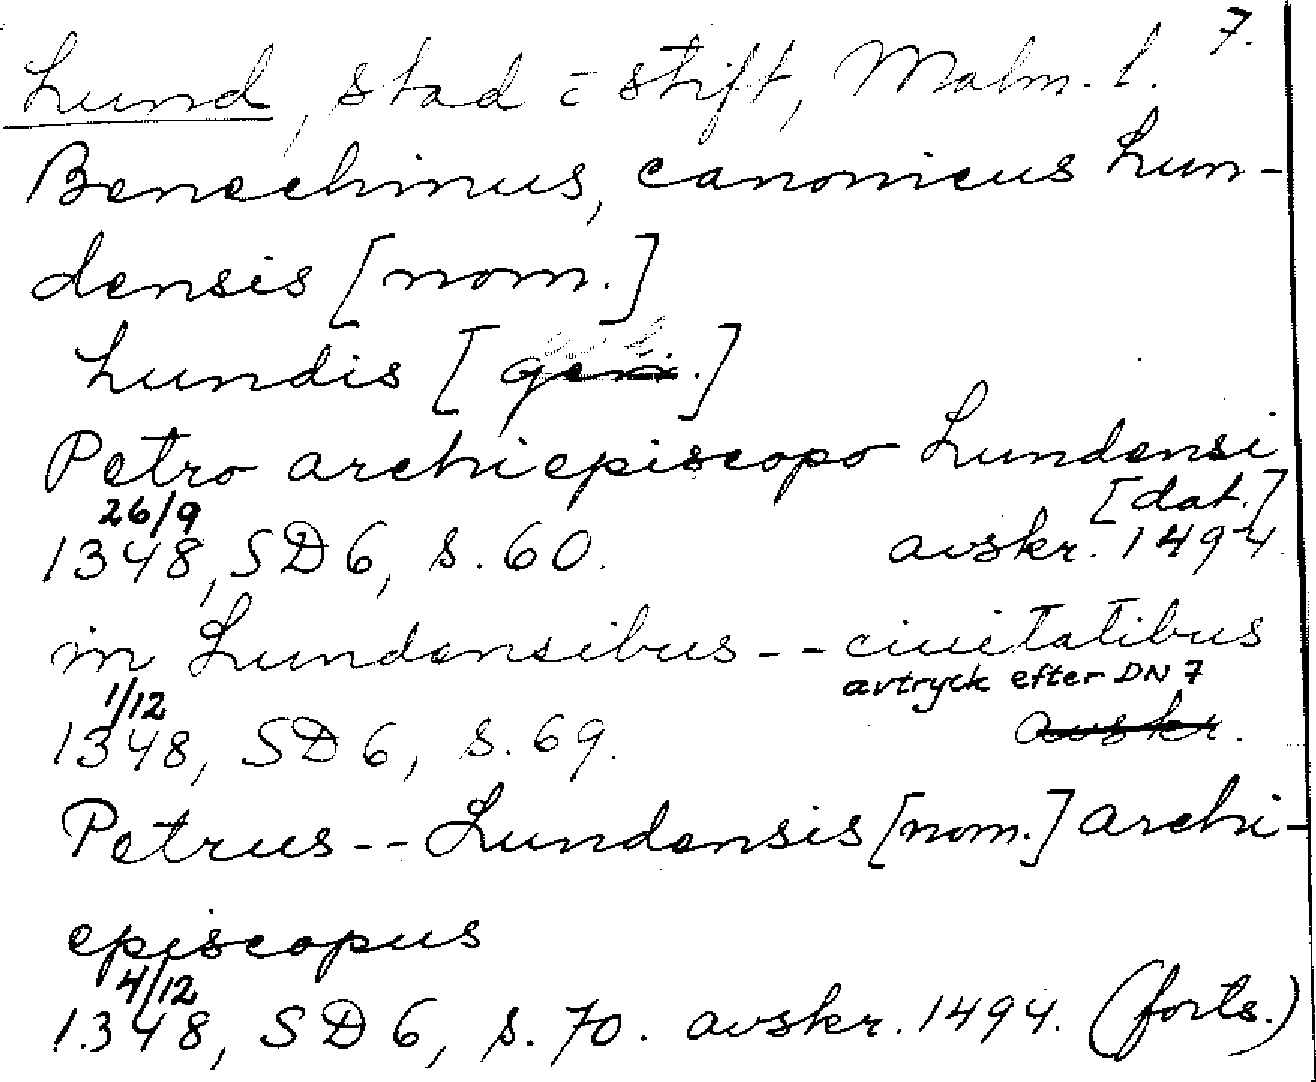 7.
Lund, stad o. stift, Malm. l.
Benechinus, canonicus Lun-
densis [nom.]
Lundis [gen.]
Petro archiepiscopo Lundensi
[dat.]
26/9
1348, SD 6, s. 60. avskr. 1494.
in Lundensibus -- ciuitatibus
1/12 avtryck efter DN 7
1348, SD 6, s. 69. avskr.
Petrus -- Lundensis [nom.] archi-
episcopus
4/12
1348, SD 6, s. 70. avskr. 1494. (forts.)